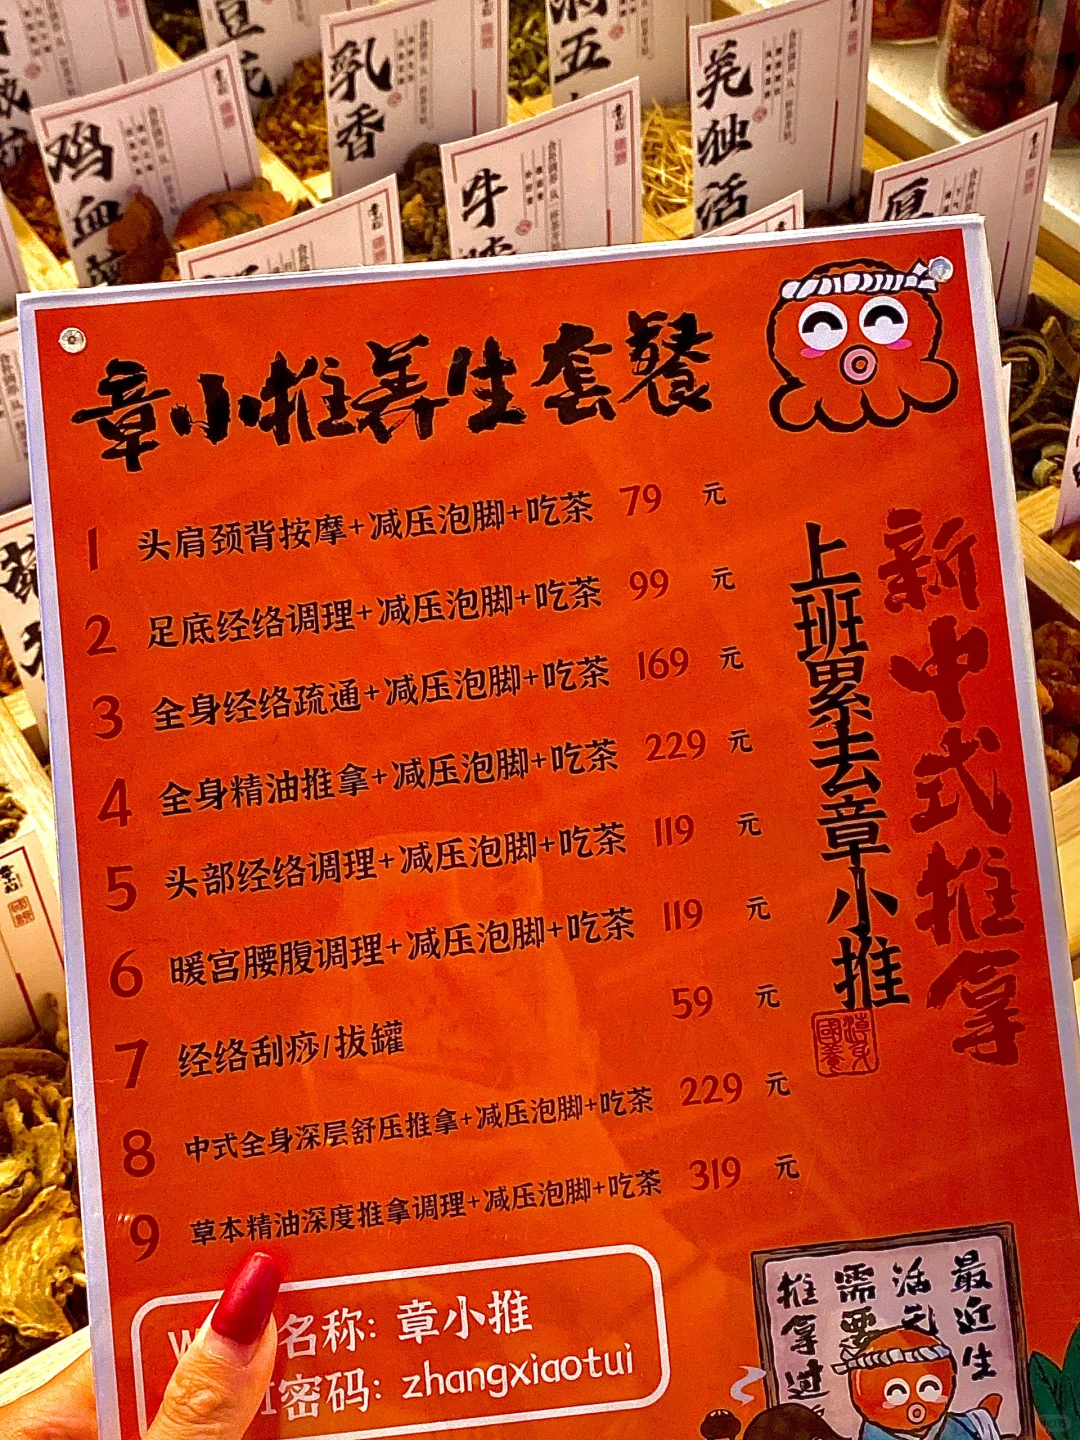 乳香
鸡血
羌独活
章小推养生套餐
1 头肩颈背按摩+减压泡脚+吃茶 79 元
2 足底经络调理+减压泡脚+吃茶 99 元
3 全身经络疏通+减压泡脚+吃茶 169 元
4 全身精油推拿+减压泡脚+吃茶 229 元
5 头部经络调理+减压泡脚+吃茶 119 元
6 暖宫腰腹调理+减压泡脚+吃茶 119 元
7 经络刮痧/拔罐 59 元
8 中式全身深层舒压推拿+减压泡脚+吃茶 229 元
9 草本精油深度推拿调理+减压泡脚+吃茶 319 元
新中式推拿
上班累去章小推
名称: 章小推
密码: zhangxiaotui
最近生
活
需要
推拿过